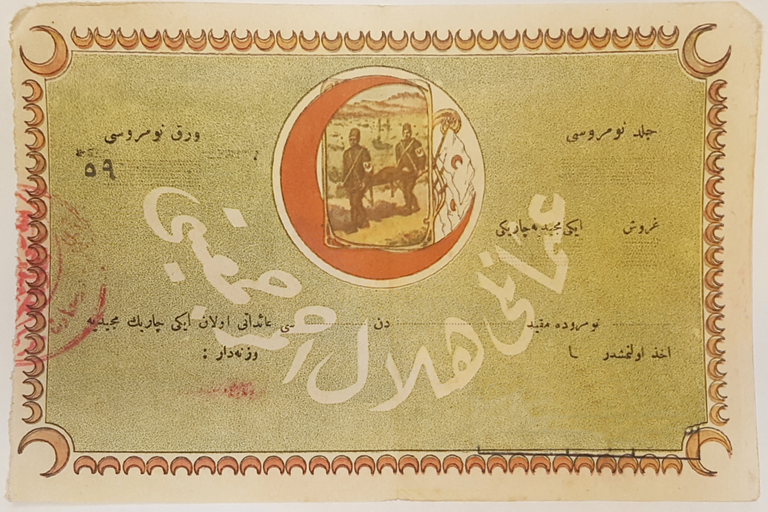 جلد نومروسی
ورق نومروسی
٥٩
غروش ایکی مجیدیه چاریکی
عثمانلی هلال احمر جمعیتی
نومروده مقید دن سی عائداتی اولان ایکی چاریك مجیدیه
اخذ اولنمشدر
وزنه‌دار :